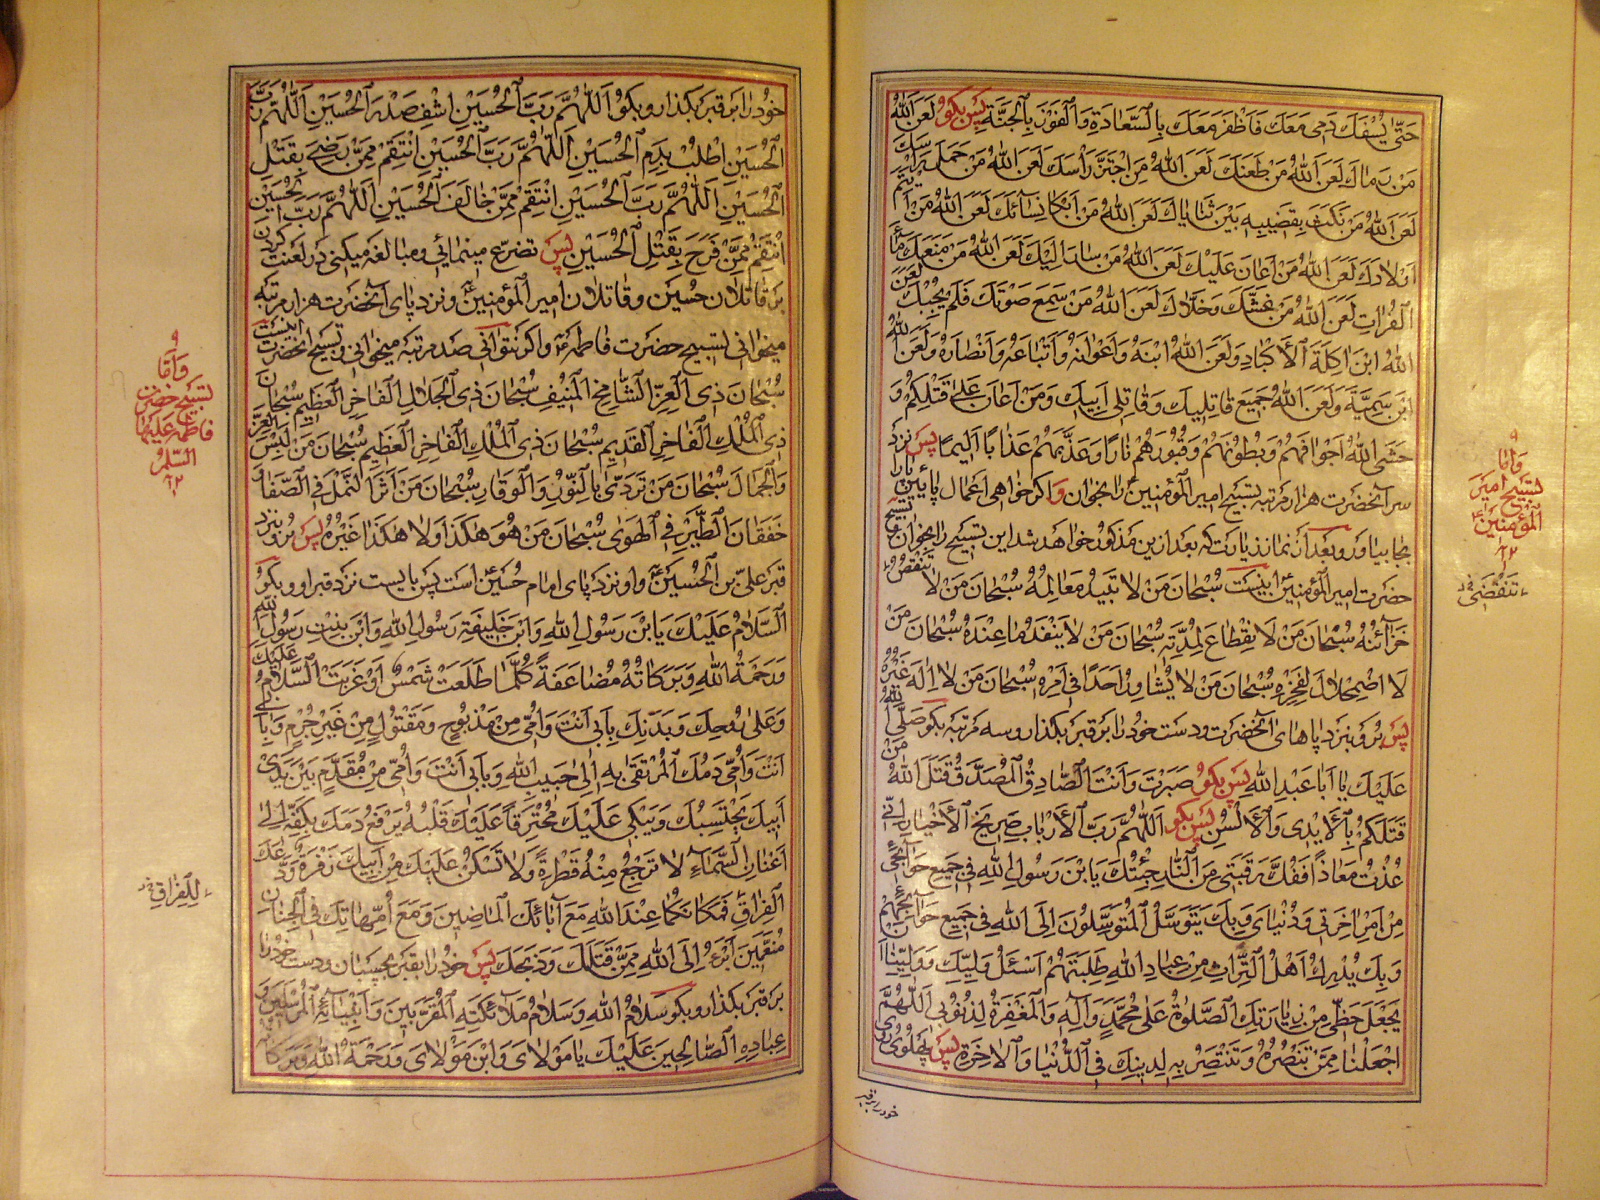 حَتّىٰ يُسْفَكَ دَمى مَعَكَ فَاَظْفَرَ مَعَكَ بِالسَّعادَةِ وَالْفَوْزَ بِالْجَنَّةِ پس بگو لَعَنَ اللّٰهُ
مَنْ رَماكَ لَعَنَ اللّٰهُ مَنْ طَعَنَكَ لَعَنَ اللّٰهُ مَنِ اجْتَزَّ رَأْسَكَ لَعَنَ اللّٰهُ مَنْ حَمَلَ رَأْسَكَ
لَعَنَ اللّٰهُ مَنْ نَكَتَ بِقَضيبِهِ بَيْنَ ثَناياكَ لَعَنَ اللّٰهُ مَنْ اَبْكا نِسائَكَ لَعَنَ اللّٰهُ مَنْ اَيْتَمَ
اَوْلادَكَ لَعَنَ اللّٰهُ مَنْ اَعانَ عَلَيْكَ لَعَنَ اللّٰهُ مَنْ سارَ اِلَيْكَ لَعَنَ اللّٰهُ مَنْ مَنَعَكَ ماءَ
الْفُراتِ لَعَنَ اللّٰهُ مَنْ غَشَّكَ وَخَلّاكَ لَعَنَ اللّٰهُ مَنْ سَمِعَ صَوْتَكَ فَلَمْ يُجِبْكَ لَعَنَ
اللّٰهُ ابْنَ اكِلَةِ الْاَكْبادِ وَلَعَنَ اللّٰهُ ابْنَهُ وَاَعْوانَهُ وَاَتْباعَهُ وَاَنْصارَهُ وَلَعَنَ اللّٰهُ
ابْنَ سُمَيَّةَ وَلَعَنَ اللّٰهُ جَميعَ قاتِليكَ وَقاتِلى اَبيكَ وَمَنْ اَعانَ عَلىٰ قَتْلِكُمْ وَ
حَشَى اللّٰهُ اَجْوافَهُمْ وَبُطُونَهُمْ وَقُبُورَهُمْ نارًا وَعَذَّبَهُمْ عَذابًا اَليمًا پس نزد
سر آنحضرت هزار مرتبه تسبيح امير المؤمنين را بخوان واكر خواهى اعمال پايين پا را
بجا بياور و بعد از نماز زيارت كه بعد ازين مذكور خواهد شد اين تسبيح را بخوان و تسبيح
حضرت امير المؤمنين اينست سُبْحانَ مَنْ لا تَبيدُ مَعالِمُهُ سُبْحانَ مَنْ لا تَنْقُصُ
خَزائِنُهُ سُبْحانَ مَنْ لَا انْقِطاعَ لِمُدَّتِهِ سُبْحانَ مَنْ لا يَنْفَدُ ما عِنْدَهُ سُبْحانَ مَنْ
لَا اضْمِحْلالَ لِفَخْرِهِ سُبْحانَ مَنْ لا يُشاوِرُ اَحَدًا فى اَمْرِهِ سُبْحانَ مَنْ لا اِلٰهَ غَيْرُهُ
پس برو بنزد پاهاى آنحضرت ودست خود را بر قبر بكذار وسه مرتبه بكو صَلَّى اللّٰهُ
عَلَيْكَ يا اَبا عَبْدِ اللّٰهِ پس بكو صَبَرْتَ وَاَنْتَ الصّادِقُ الْمُصَدَّقُ قَتَلَ اللّٰهُ مَنْ
قَتَلَكُمْ بِالْاَيْدى وَالْاَلْسُنِ پس بكو اَللّٰهُمَّ رَبَّ الْاَرْبابِ صَريخَ الْاَخْيارِ اِنّى
عُذْتُ مَعاذًا فَفُكَّ رَقَبَتى مِنَ النّارِ جِئْتُكَ يَا ابْنَ رَسُولِ اللّٰهِ فى جَميعِ حَوائِجى
مِنْ اَمْرِ اخِرَتى وَدُنْياىَ وَبِكَ يَتَوَسَّلُ الْمُتَوَسِّلُونَ اِلَى اللّٰهِ فى جَميعِ حَوائِجِهِمْ
وَبِكَ يُدْرِكُ اَهْلُ التُّراثِ مِنْ عِبادِ اللّٰهِ طَلِبَتَهُمْ اَسْئَلُ وَلِيَّكَ وَوَلِيَّنا اَنْ
يَجْعَلَ حَظّى مِنْ زِيارَتِكَ الصَّلٰوةَ عَلىٰ مُحَمَّدٍ وَآلِهِ وَالْمَغْفِرَةَ لِذُنُوبى اَللّٰهُمَّ
اجْعَلْنا مِمَّنْ تَنْصُرُهُ وَتَنْتَصِرُ بِهِ لِدينِكَ فِى الدُّنْيا وَالْاخِرَةِ پس پهلوى روى
خود را بر قبر
وَامّا
تسبيح امير
المؤمنين
خود را بر قبر بكذار و بكو اَللّٰهُمَّ رَبَّ الْحُسَيْنِ اشْفِ صَدْرَ الْحُسَيْنِ اَللّٰهُمَّ رَبَّ
الْحُسَيْنِ اطْلُبْ بِدَمِ الْحُسَيْنِ اَللّٰهُمَّ رَبَّ الْحُسَيْنِ انْتَقِمْ مِمَّنْ رَضِىَ بِقَتْلِ
الْحُسَيْنِ اَللّٰهُمَّ رَبَّ الْحُسَيْنِ انْتَقِمْ مِمَّنْ خالَفَ الْحُسَيْنِ اَللّٰهُمَّ رَبَّ الْحُسَيْنِ
انْتَقِمْ مِمَّنْ فَرِحَ بِقَتْلِ الْحُسَيْنِ پس تضرع مينمائى ومبالغه ميكنى در لعنت كردن
بر قاتلان حسين وقاتلان امير المؤمنين ونزد پاى آنحضرت هزار مرتبه
ميخوانى تسبيح حضرت فاطمه واكر نتوانى صد مرتبه ميخوانى وتسبيح آنحضرت اينست
سُبْحانَ ذِى الْعِزِّ الشّامِخِ الْمُنيفِ سُبْحانَ ذِى الْجَلالِ الْفاخِرِ الْعَظيمِ سُبْحانَ
ذِى الْمُلْكِ الْفاخِرِ الْقَديمِ سُبْحانَ ذِى الْمُلْكِ الْفاخِرِ الْعَظيمِ سُبْحانَ مَنْ لَبِسَ الْعِزَّ
وَالْجَمالَ سُبْحانَ مَنْ تَرَدّىٰ بِالنُّورِ وَالْوَقارِ سُبْحانَ مَنْ يَرىٰ اَثَرَ النَّمْلِ فِى الصَّفا وَ
خَفَقانَ الطَّيْرِ فِى الْهَوىٰ سُبْحانَ مَنْ هُوَ هٰكَذا وَلا هٰكَذا غَيْرُهُ پس برو بنزد
قبر على بن الحسين واو نزد پاى امام حسين است پس بايست نزد قبر او و بكو
اَلسَّلامُ عَلَيْكَ يَا ابْنَ رَسُولِ اللّٰهِ وَابْنَ خَليفَةِ رَسُولِ اللّٰهِ وَابْنَ بِنْتِ رَسُولِ اللّٰهِ
وَرَحْمَةُ اللّٰهِ وَبَرَكاتُهُ مُضاعَفَةً كُلَّما طَلَعَتْ شَمْسٌ اَوْ غَرَبَتْ اَلسَّلامُ عَلَيْكَ
وَعَلىٰ رُوحِكَ وَبَدَنِكَ بِاَبى اَنْتَ وَاُمّى مِنْ مَذْبُوحٍ وَمَقْتُولٍ مِنْ غَيْرِ جُرْمٍ وَبِاَبى
اَنْتَ وَاُمّى دَمُكَ الْمُرْتَقىٰ بِهِ اِلىٰ حَبيبِ اللّٰهِ وَبِاَبى اَنْتَ وَاُمّى مِنْ مُقَدَّمٍ بَيْنَ يَدَىْ
اَبيكَ يَحْتَسِبُكَ وَيَبْكى عَلَيْكَ مُحْتَرِقًا عَلَيْكَ قَلْبُهُ يَرْفَعُ دَمَكَ بِكَفِّهِ اِلىٰ
اَعْنانِ السَّماءِ لا تَرْجِعُ مِنْهُ قَطْرَةٌ وَلا تَسْكُنُ عَلَيْكَ مِنْ اَبيكَ زَفْرَةٌ وَدَّعَكَ
الْفِراقِ فَمَكانُكُما عِنْدَ اللّٰهِ مَعَ آبائِكَ الْماضينَ وَمَعَ اُمَّهاتِكَ فِى الْجِنانِ
مُنَعَّمينَ اَبْرَءُ اِلَى اللّٰهِ مِمَّنْ قَتَلَكَ وَذَبَحَكَ پس خود را بقبر بچسبان ودست خود را
بر قبر بكذار و بكو سَلامُ اللّٰهِ وَسَلامُ مَلائِكَتِهِ الْمُقَرَّبينَ وَاَنْبِيائِهِ الْمُرْسَلينَ وَ
عِبادِهِ الصّالِحينَ عَلَيْكَ يا مَوْلاىَ وَابْنَ مَوْلاىَ وَرَحْمَةُ اللّٰهِ وَبَرَكاتُهُ
وَامّا
تسبيح حضرت
فاطمه عليها
السلم
لِلْفِراقِ